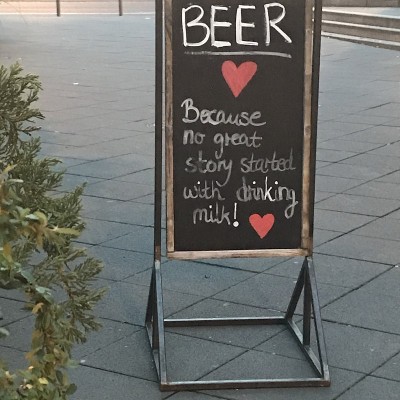 BEER
Because
no great
story started
with drinking
milk!